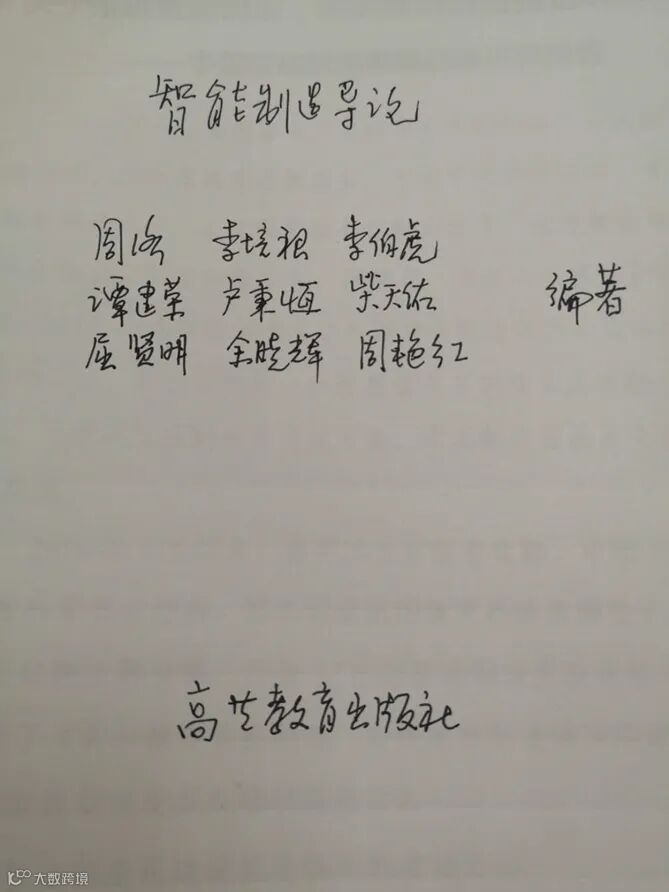 智能制造导论
周济 李培根 李伯虎
谭建荣 卢秉恒 柴天佑 编著
屈贤明 余晓辉 周艳红
高等教育出版社
大数跨境